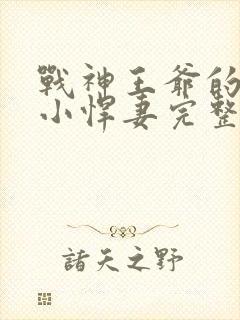 戰神王爺的
小悍妻完整
諸天之野